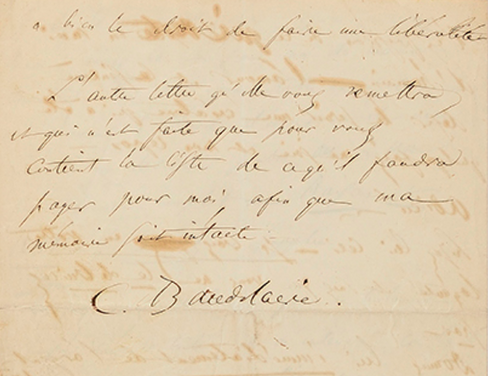 a bien le droit de faire une libéralité
L'autre lettre qu'elle vous remettra,
et qui n'est faite que pour vous
contient la liste de ce qu'il faudra
payer pour moi afin que ma
mémoire soit intacte –
C. Baudelaire.